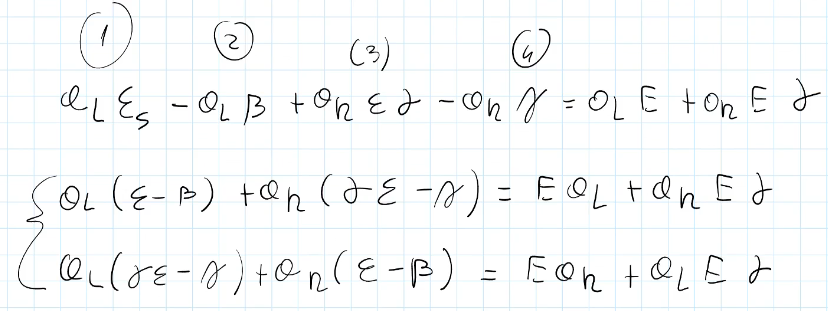 ① ② (3) ④
a_L ε_s - a_L β + a_R ε γ - a_R γ = a_L E + a_R E γ
a_L (ε - β) + a_R (γ ε - γ) = E a_L + a_R E γ
a_L (γ ε - γ) + a_R (ε - β) = E a_R + a_L E γ